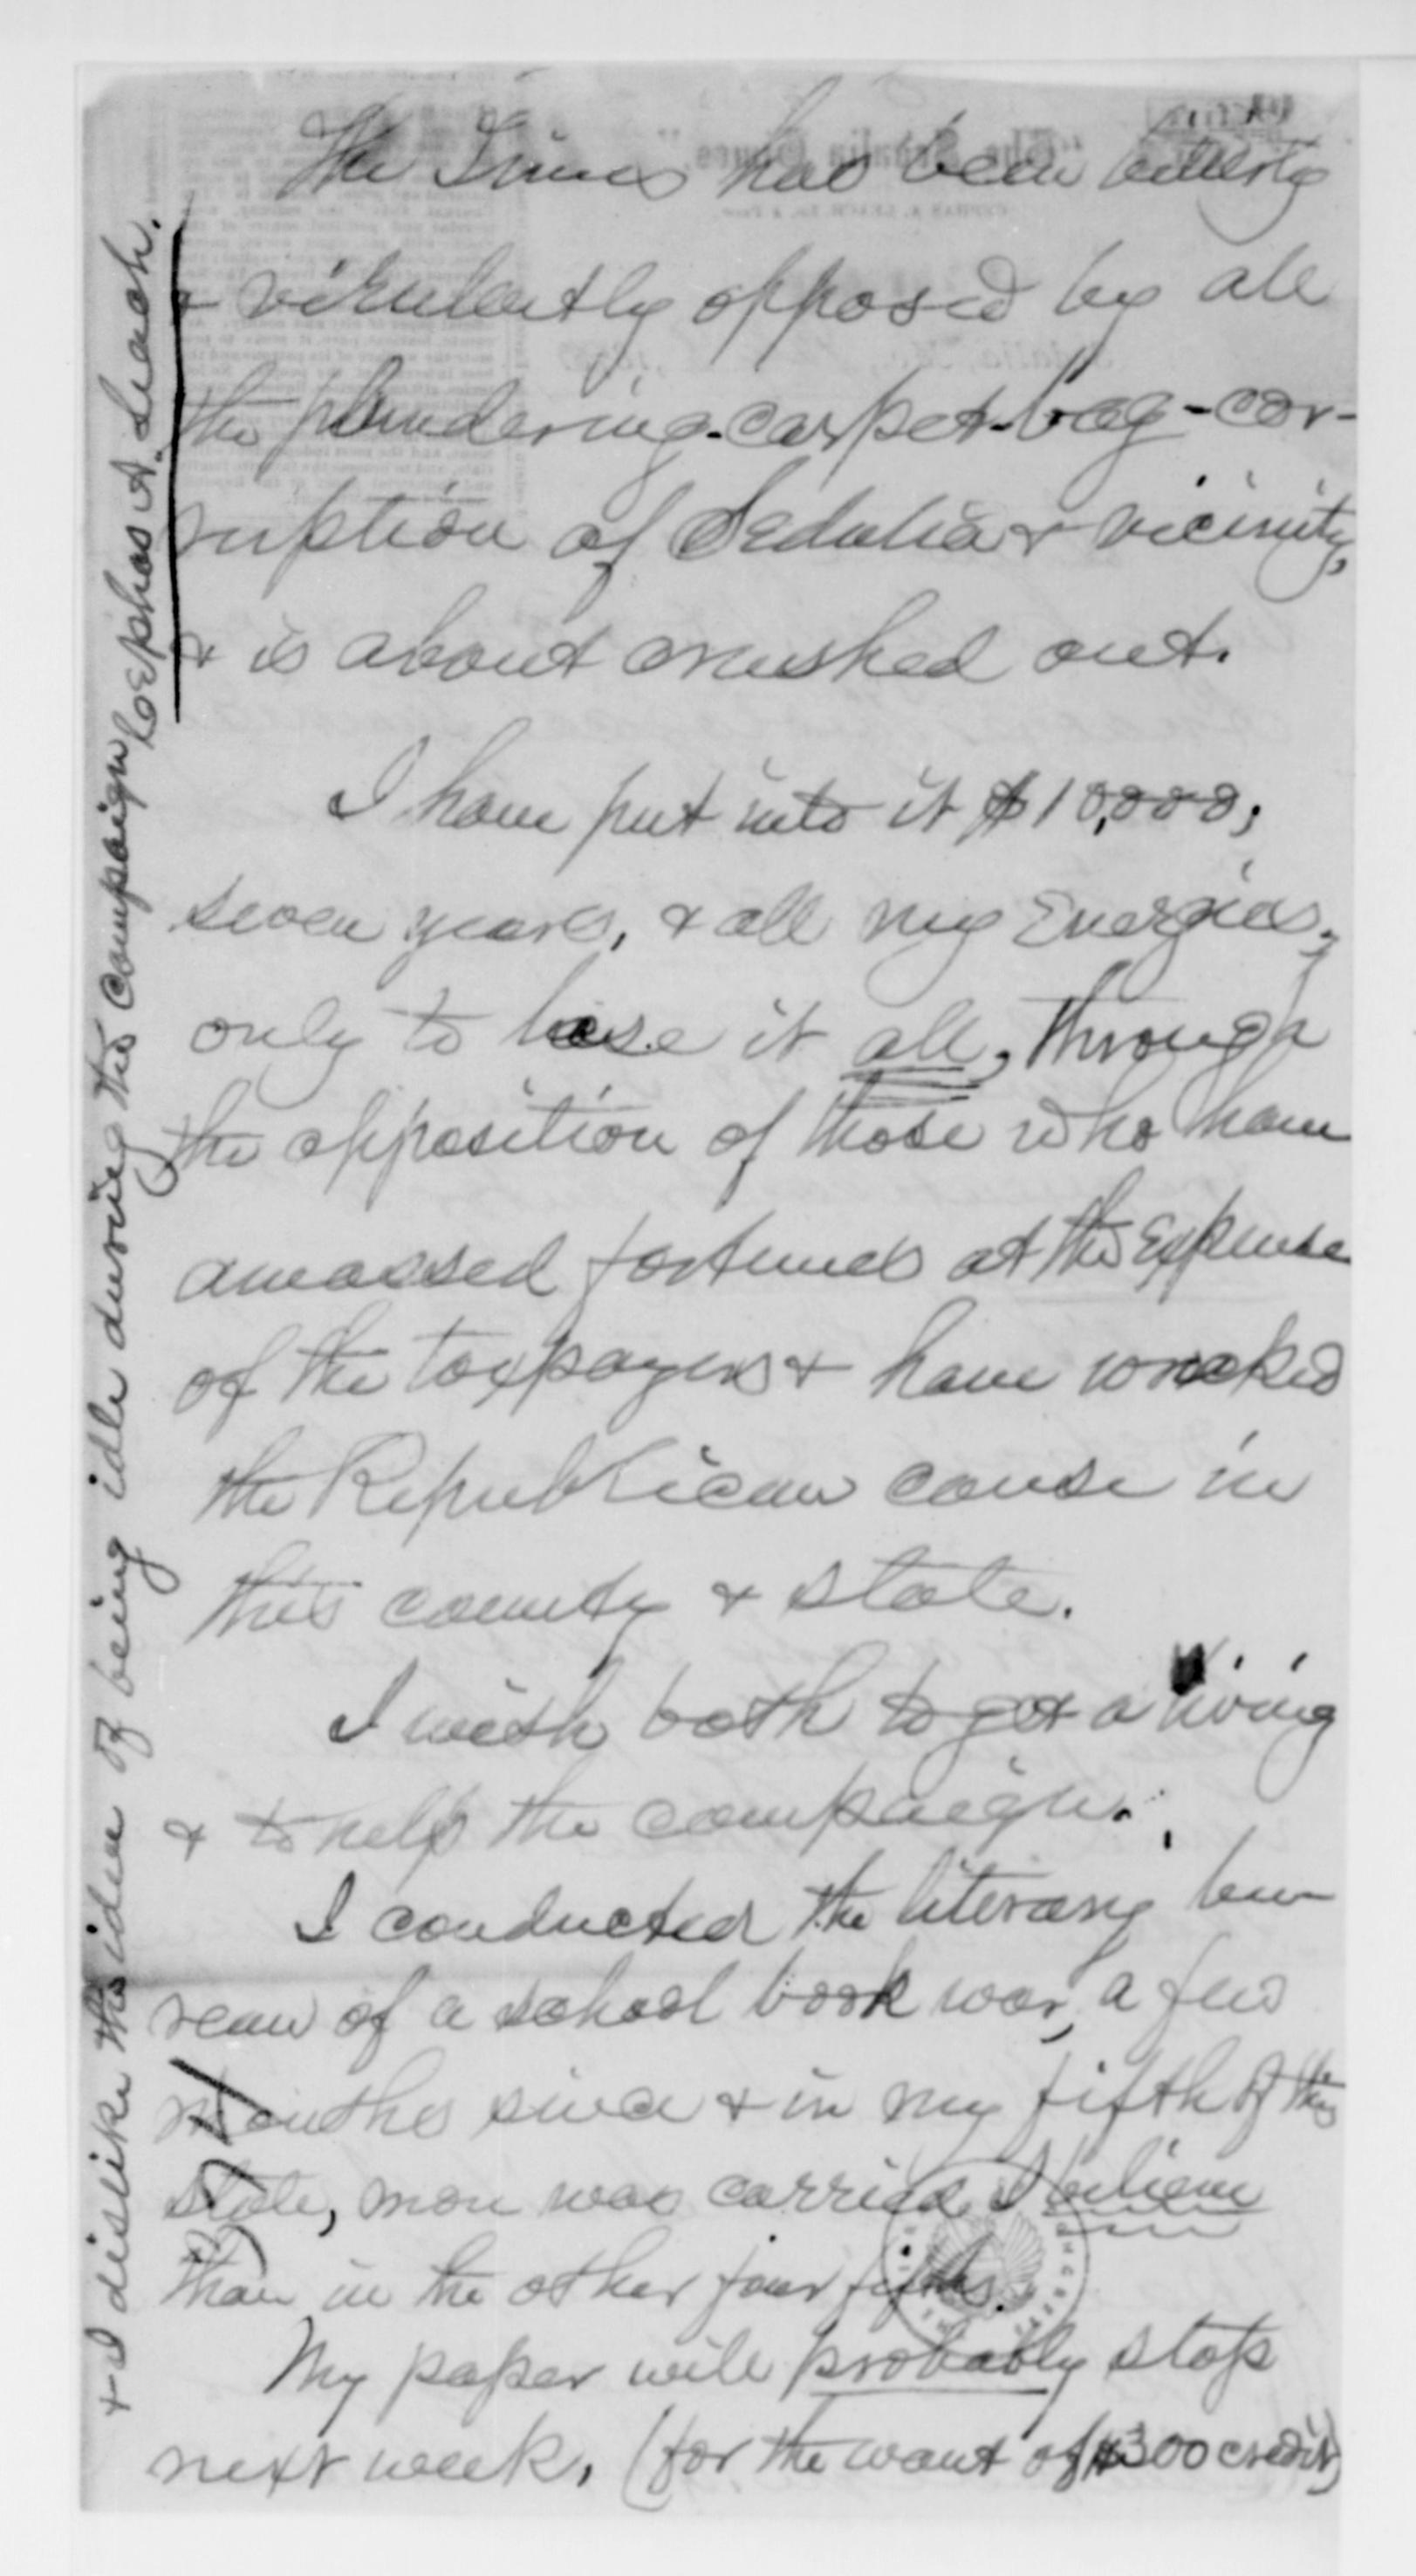 The Times has been bitterly
& virulently opposed by all
the plundering-carpet-bag-cor-
ruption of Sedalia & vicinity,
& is about crushed out.
I have put into it $10,000;
seven years, & all my Energies,
only to lose it all, through
the opposition of those who have
amassed fortunes at the Expense
of the taxpayers & have wrecked
the Republican cause in
this county & state.
I wish both to get a living
& to help the campaign.
I conducted the literary bu-
reau of a school book war, a few
months since & in my fifth of the
state, more was carried I believe
than in the other four fifths.
My paper will probably stop
next week, (for the want of $300 credit)
& I dislike the idea of being idle during the campaign
Cephas A. Leach.